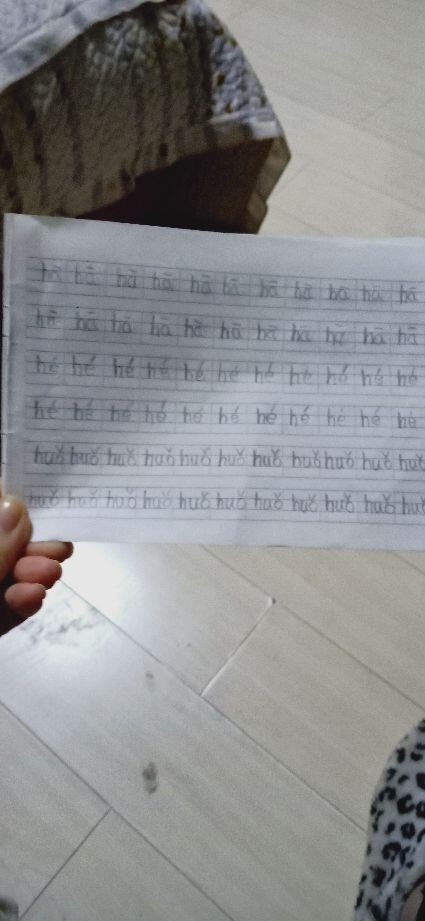 hā hā hā hā hā hā hā hā hā hā hā
hā hā hā hā hā hā hā hā hā hā hā
hé hé hé hé hé hé hé hé hé hé hé
hé hé hé hé hé hé hé hé hé hé hé
huǒ huǒ huǒ huǒ huǒ huǒ huǒ huǒ huǒ huǒ
huǒ huǒ huǒ huǒ huǒ huǒ huǒ huǒ huǒ huǒ